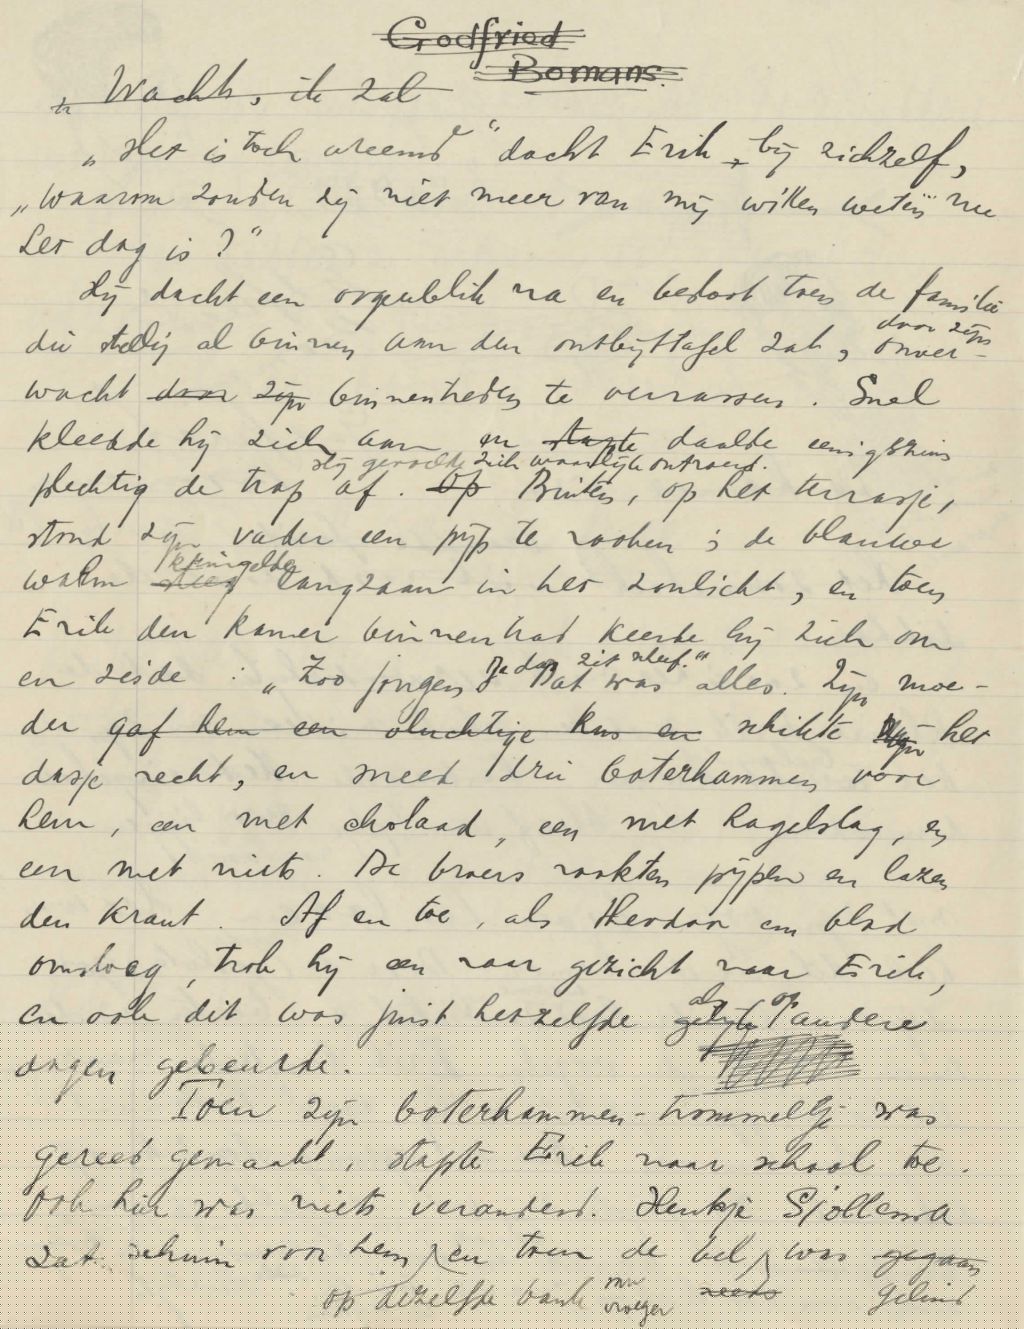 Godfried
Bomans.
„Wacht, ik zal
„Het is toch vreemd“ dacht Erik bij zichzelf,
„waarom zouden zij niet meer van mij willen weten nu
het dag is?“
Hij dacht een oogenblik na en besloot toen de familie
door zijn
die stellig al binnen aan den ontbijttafel zat, onver-
wacht door zijn binnentreden te verrassen. Snel
kleedde hij zich aan en stapte daalde eenigszins
Hij gevoelde zich waarlijk ontroerd.
plechtig de trap af. Op Buiten, op het terrasje,
stond zijn vader een pijp te rooken; de blauwe
kringelde
walm steeg langzaam in het zonlicht, en toen
Erik den kamer binnentrad keerde hij zich om
Je das zit scheef.“
en zeide: „Zoo jongen Dat was alles. Zijn moe-
der gaf hem een vluchtige kus en schikte zijn het
dasje recht, en sneed drie boterhammen voor
hem, een met cholaad, een met hagelslag, en
een met niets. De broers rookten pijpen en lazen
den krant. Af en toe, als Theodoor een blad
omsloeg, trok hij een raar gezicht naar Erik,
als op
en ook dit was juist hetzelfde gelijk andere
ongen gebeurde.
Toen zijn boterhammen-trommeltje was
gereed gemaakt, stapte Erik naar school toe.
Ook hier was niets veranderd. Henkje Sjollema
zat schuin voor hem en toen de bel was gegaan
op dezelfde bank vroeger reeds geluid